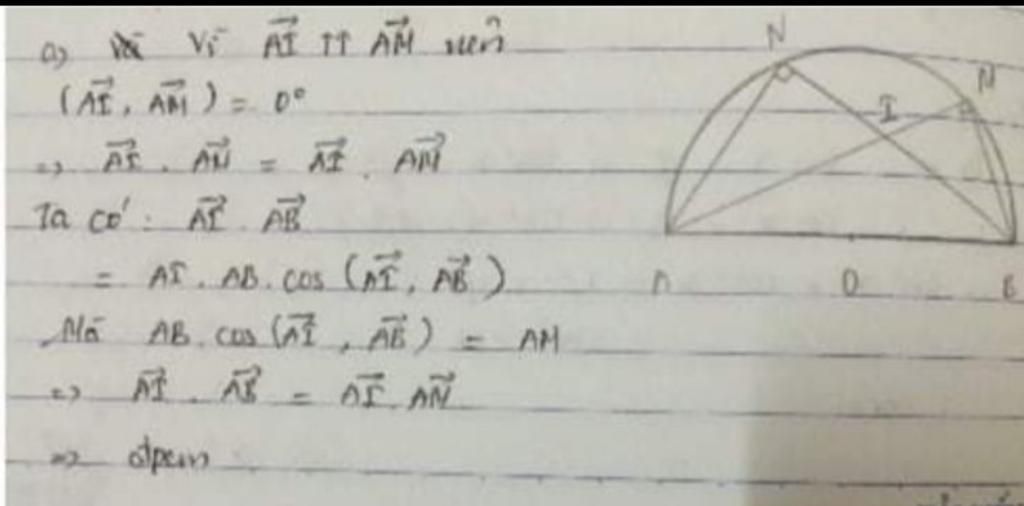 a) Vì $\overrightarrow{AI}$ ↑↑ $\overrightarrow{AM}$ nên
($\overrightarrow{AI}$, $\overrightarrow{AM}$) = 0°
=> $\overrightarrow{AI}$ . $\overrightarrow{AM}$ = $\overrightarrow{AI}$ . $\overrightarrow{AM}$
Ta có: $\overrightarrow{AI}$ . $\overrightarrow{AB}$
= AI . AB . cos ($\overrightarrow{AI}$, $\overrightarrow{AB}$)
Mà AB . cos ($\overrightarrow{AI}$, $\overrightarrow{AB}$) = AM
=> $\overrightarrow{AI}$ . $\overrightarrow{AB}$ = $\overrightarrow{AI}$ . $\overrightarrow{AM}$
=> đpcm
N
M
I
A O B